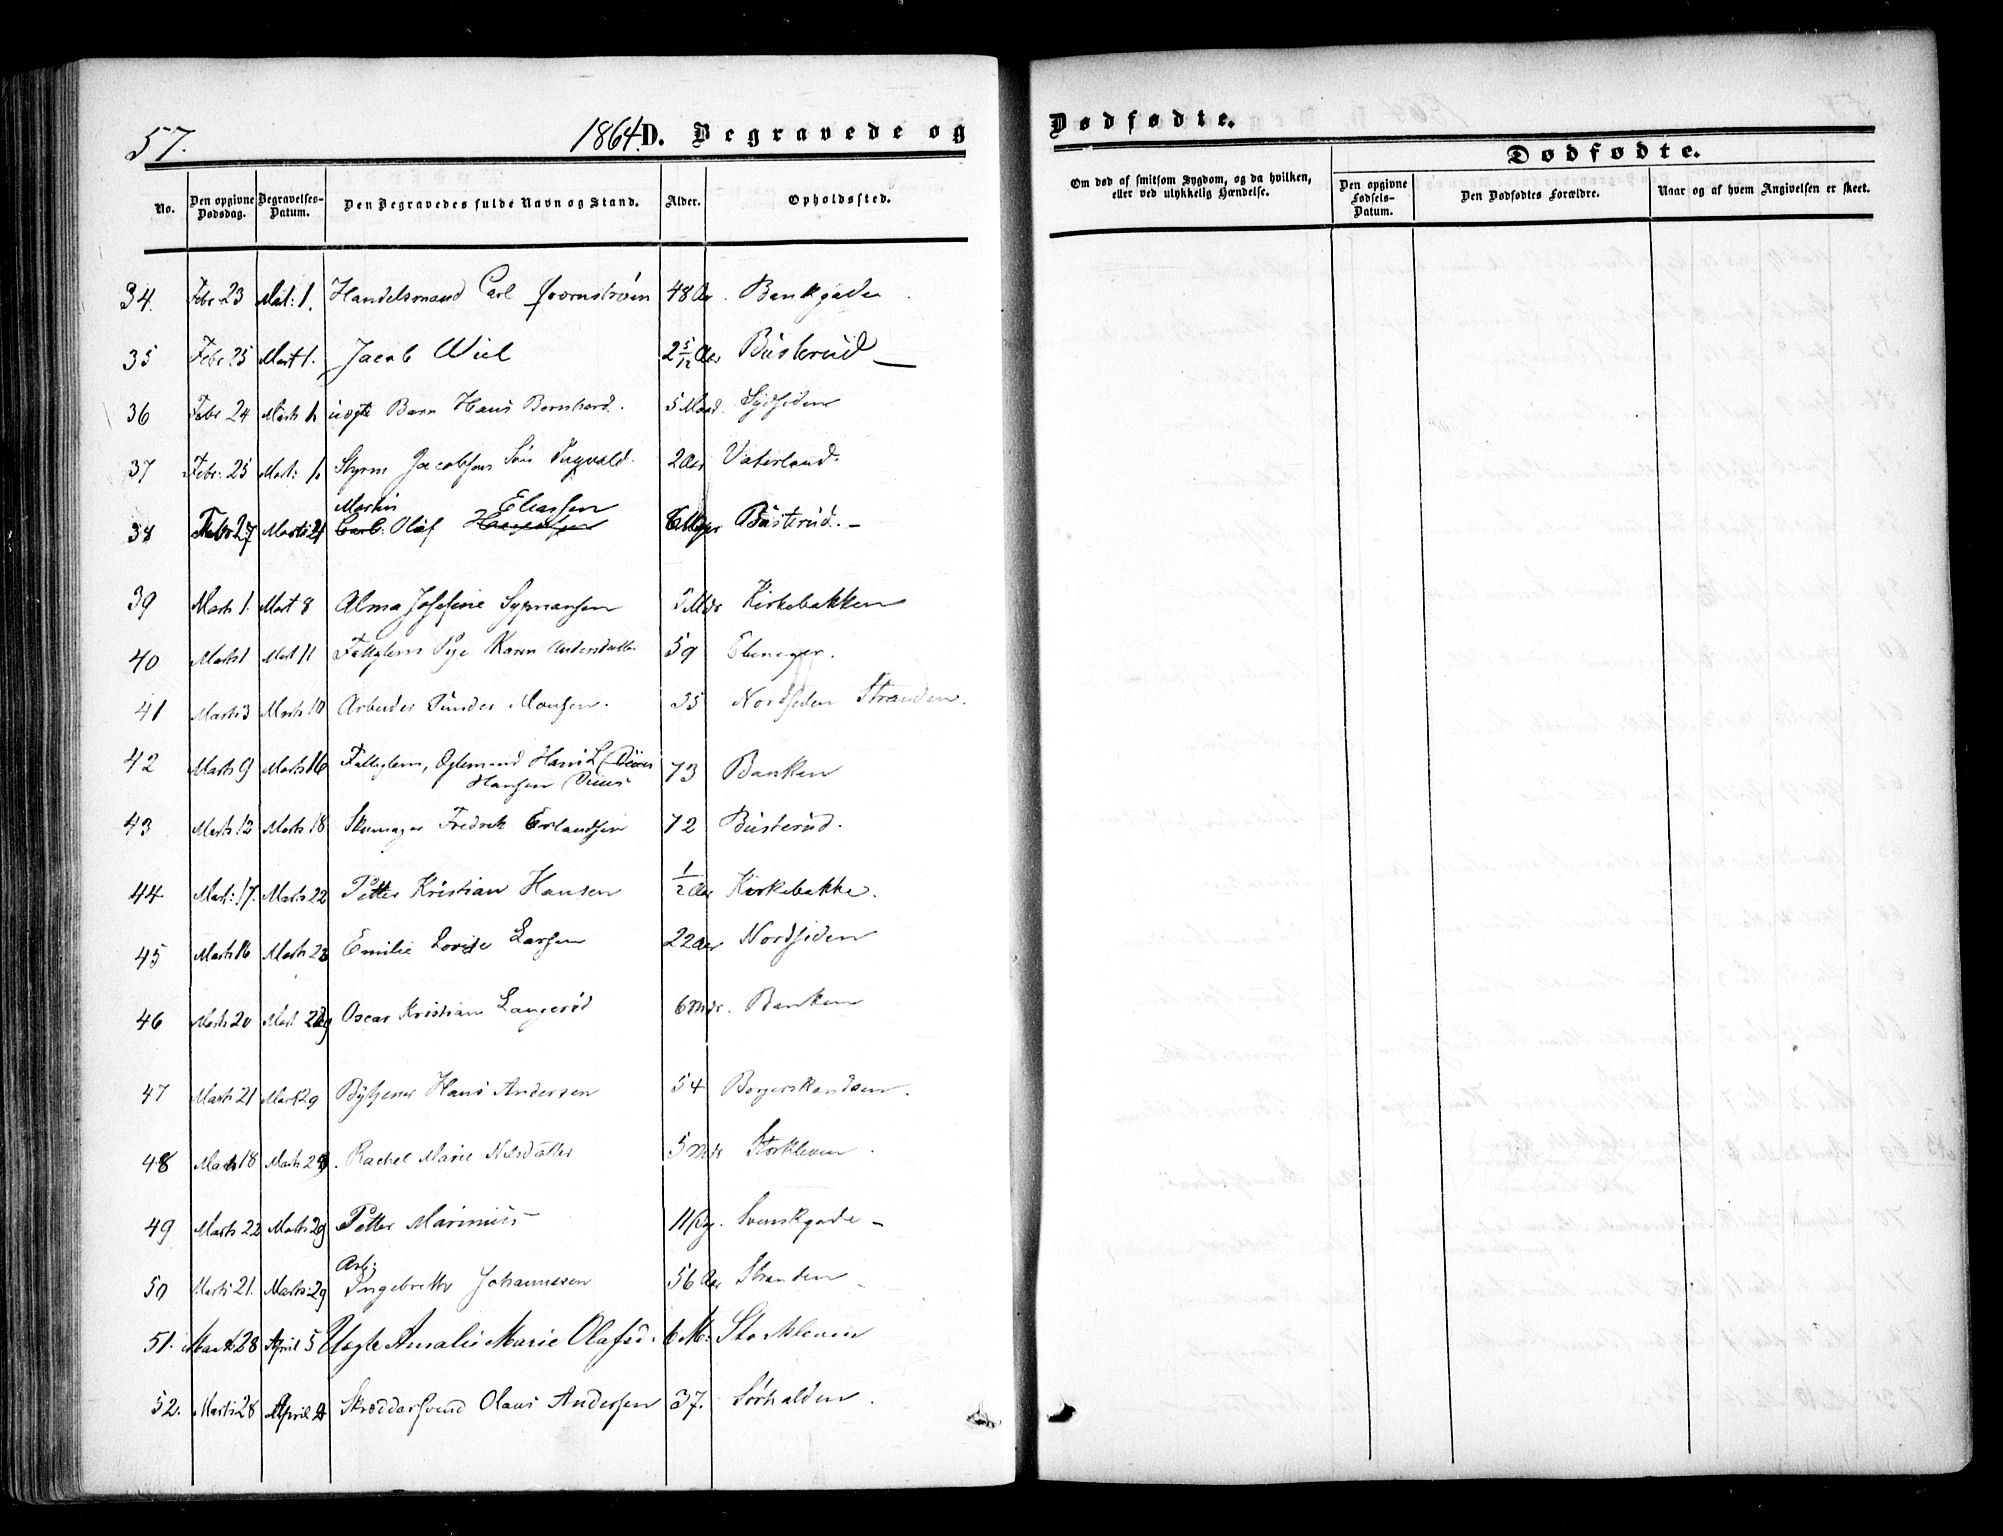 57.
1864. D. Begravede og
Dødfødte.
Dødfødte.
No.
Den opgivne Dødsdag.
Begravelses-Datum.
Den Begravedes fulde Navn og Stand.
Alder.
Opholdssted.
Om død af smitsom Sygdom, og da hvilken, eller ved ulykkelig Hændelse.
Den opgivne Fødsels-Datum.
Den Dødfødtes Forældre.
Naar og af hvem Angivelsen er skeet.
34. Febr. 23 Mart: 1. Handelsmand Carl 48 Aar. Bankgaden
35 Febr 25 Mart 1. Jacob Wiel 2 5/12 Aar Busterud
36 Febr 24 Marts 1. uægte Barn Hans Bernhard. 5 Maad. Sydsiden
37 Febr. 25 Mart: 1. Styrm Jacobsens Søn Ingvald. 2 Aar Vaterland.
Martin Eliassen
38 Febr 27 Marts Carl Olaf Busterud.
39 Marts 1. Mart 8 Alma Josefine 5 Mdr Kirkebakken
40 Marts 1 Mart 11 Fattiglem Pige Karen Andersdatter 59 Ebenezer.
41 Marts 3 Marts 10 Arbeider Monsen. 35 Nordsiden Stranden.
42 Marts 9 Marts 16 Fattiglem, Hans L
Hansen 73 Banken
43 Marts 12 Marts 18 Skomager Fredrik Erlandsen 72 Busterud.
44 Mart: 17. Marts 22 Petter Kristian Hansen 1/2 Aar Kirkebakke.
45 Marts 16 Marts 23 Emilie Lovise Larsen 22 Aar Nordsiden
46 Marts 20 Mart 29 Oscar Kristian Langerød 6 Mdr. Banken
47 Marts 21 Mart 29 Bytjener Hans Andersen 54 Borgerskandsen.
48 Marts 18 Marts 29. Rachel Marie Nilsdatter 5 Mdr Storkleven.
49 Marts 22 Marts 29 Petter Marinius 11 Svenskgade
Arb:
50 Marts 21. Marts 29 Ingebrette Johannessen 56 Aar Stranden
51. Marts 28 April 5 Uægte Amalie Marie Olafsd. 6 M. Storkleven
52. Marts 28 April Skræddersvend Olaus Andersen 37. Sørhalden.